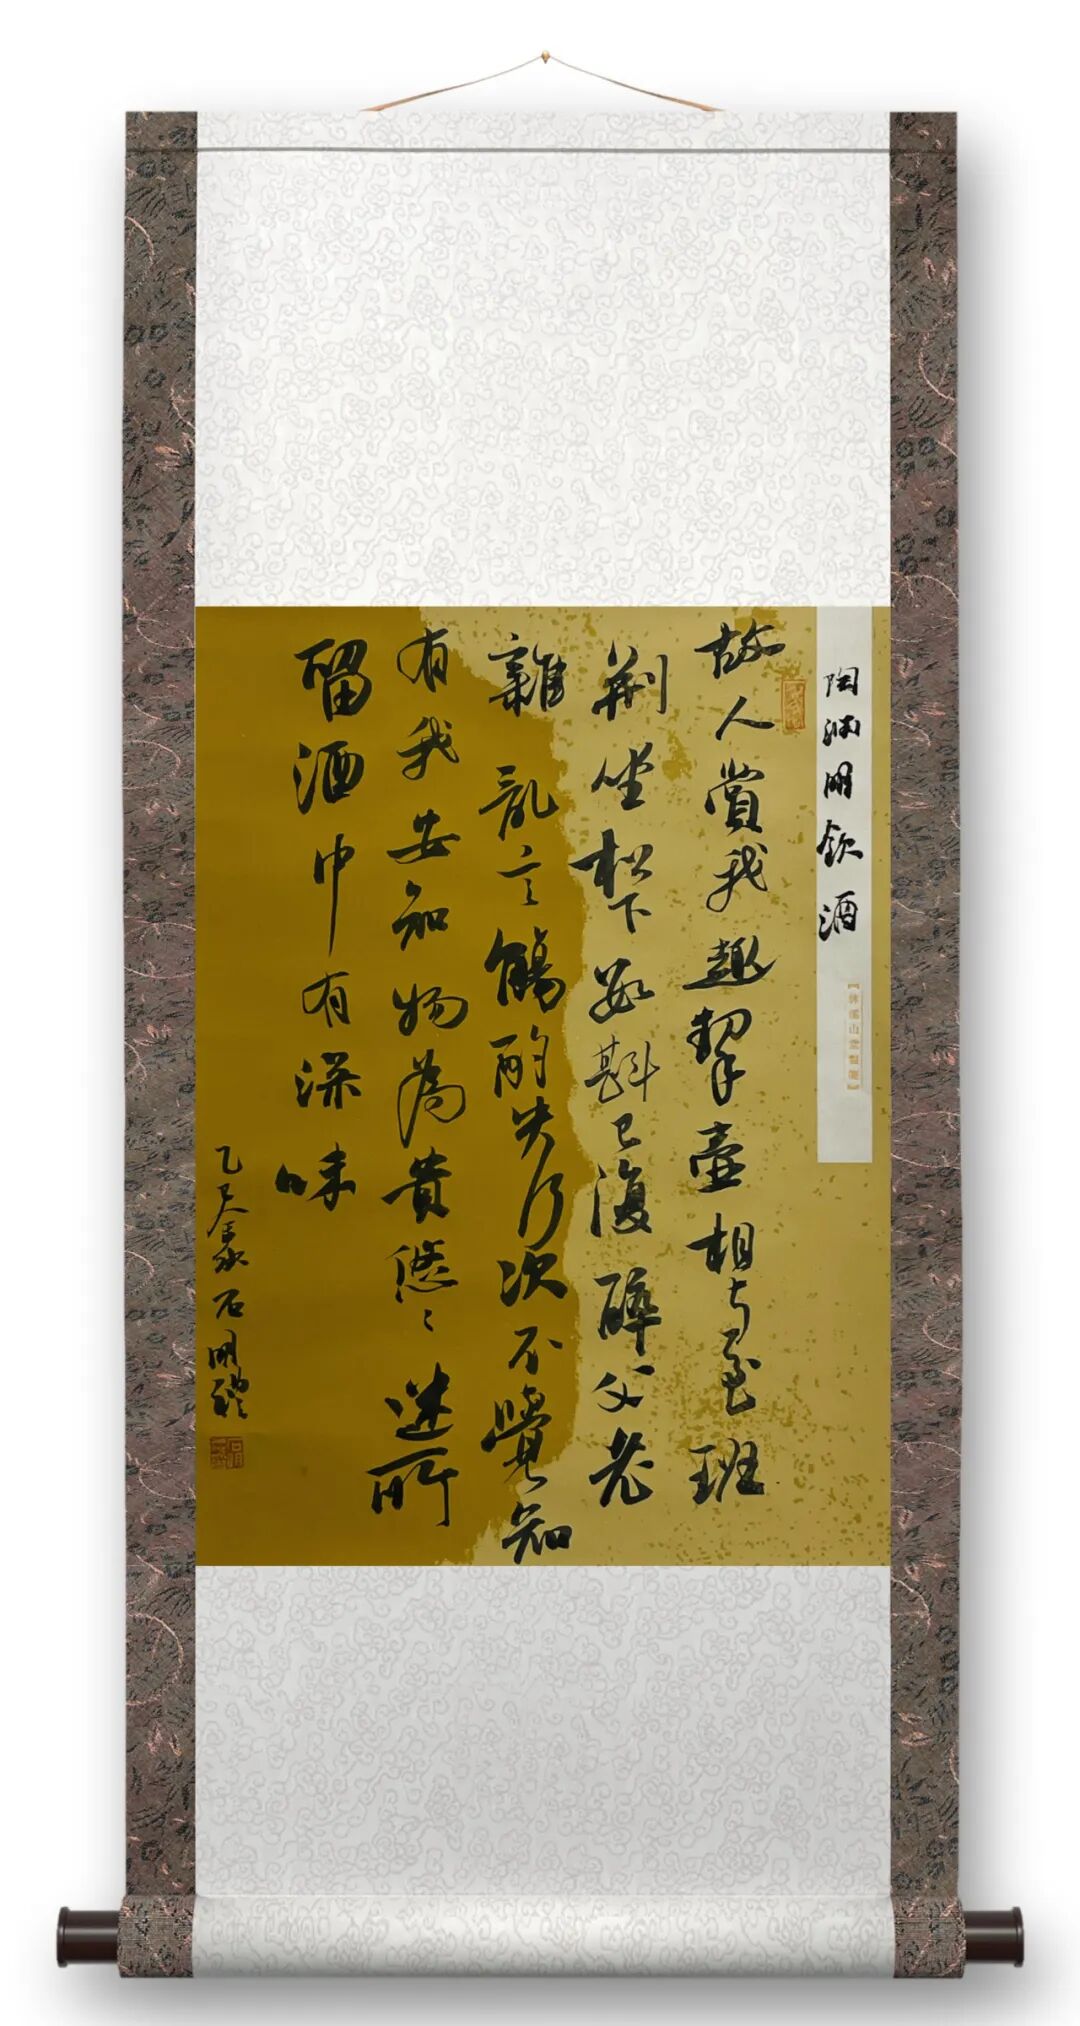 陶渊明飲酒
故人賞我趣挈壺相与至班
荆坐松下數斟已復醉父老
雜亂言觴酌失行次不覺知
有我安知物為貴悠〻迷所
留酒中有深味
乙巳 石明禮